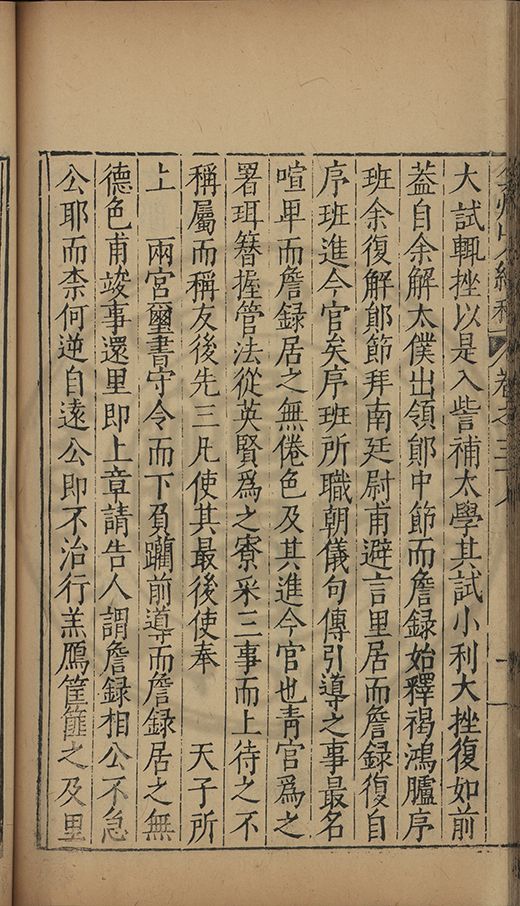 大試輒挫以是入訾補太學其試小利大挫復如前
蓋自余解太僕出領鄖中節而詹録始釋褐鴻臚序
班余復解鄖節拜南廷尉甫避言里居而詹録復自
序班進今官矣序班所職朝儀句傳引導之事最名
喧卑而詹録居之無倦色及其進今官也青宮爲之
署珥簪握管法從英賢爲之寮寀三事而上待之不
稱屬而稱友後先三凡使其最後使奉 天子所
上 兩宮璽書守令而下負韊前導而詹録居之無
德色甫竣事還里即上章請告人謂詹録相公不急
公耶而柰何逆自遠公即不治行羔鴈筐篚之及里